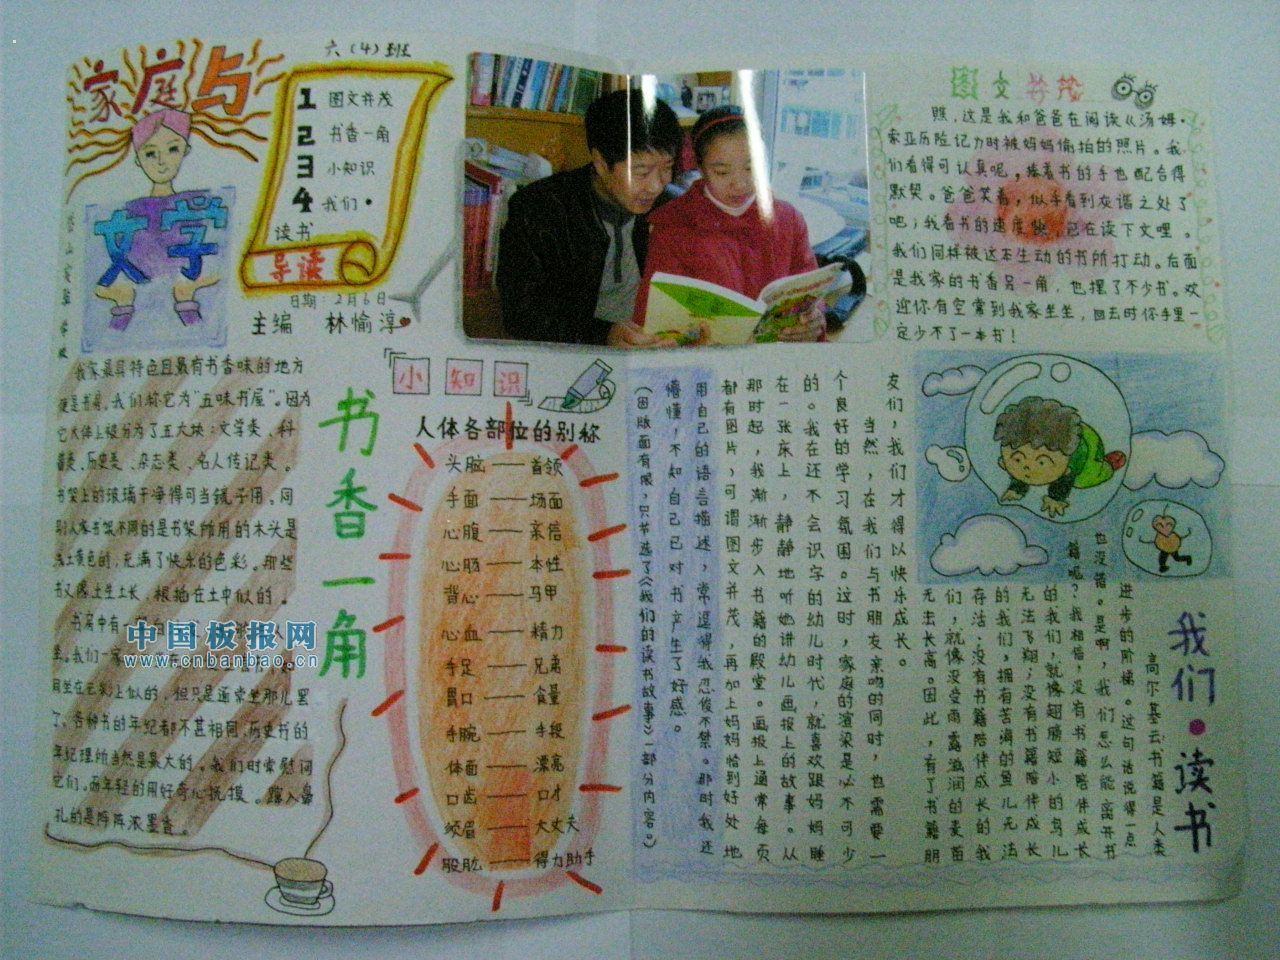 六(4)班
家庭与
文学
1 图文并茂
2 书香一角
3 小知识
4 我们·
读书
导读
日期:2月6日
主编 林愉淳
图文并茂
瞧,这是我和爸爸在阅读《汤姆·
索亚历险记》时被妈妈偷拍的照片。我
们看得可认真呢,捧着书的手也配合得
默契。爸爸笑着,似乎看到灰谐之处了
吧;我看书的速度快,已在读下文哩。
我们同样被这本生动的书所打动。后面
是我家的书香另一角,也摆了不少书。欢
迎你有空常到我家坐坐,回去时你手里一
定少不了一本书!
书香一角
我家最具特色且最有书香味的地方
便是书房。我们称它为“五味书屋”。因为
它大体上被分为了五大块:文学类、科
普类、历史类、杂志类、名人传记类。
书架上的玻璃干净得可当镜子用。同
别人家书房不同的是书架所用的木头是
浅土黄色的,充满了快乐的色彩。那些
书又像土生土长,根插在土中似的。
书房中有
坐。我们一家
同坐在云彩上似的,但只是通常坐那儿罢
了。各种书的年纪都不甚相同,历史书的
年纪理所当然是最大的。我们时常慰问
它们。而年轻的用好奇心抚摸。蹿入鼻
孔的是阵阵浓墨香。
小知识
人体各部位的别称
头脑——首领
手面——场面
心腹——亲信
心肠——本性
背心——马甲
心血——精力
手足——兄弟
胃口——食量
手腕——手段
体面——漂亮
口齿——口才
须眉——大丈夫
股肱——得力助手
我们·读书
高尔基云:书籍是人类
进步的阶梯。这句话说得一点
也没错。是啊,我们怎么能离开书
籍呢?我相信,没有书籍陪伴成长
的我们,就像翅膀短小的鸟儿
无法飞翔;没有书籍陪伴成长
的我们,拥有苦海的鱼儿无法
存活;没有书籍陪伴成长的我
们,就像没受雨露滋润的麦苗
无法长高。因此,有了书籍朋
友们,我们才得以快乐成长。
当然,在我们与书朋友亲吻的同时,也需要一
个良好的学习氛围。这时,家庭的渲染是必不可少
的。我在还不会识字的幼儿时代,就喜欢跟妈妈睡
在一张床上,静静地听她讲幼儿画报上的故事。从
那时起,我渐渐步入书籍的殿堂。画报上通常每页
都有图片,可谓图文并茂,再加上妈妈恰到好处地
用自己的语言描述,常逗得我忍俊不禁。那时我还
懵懂,不知自己已对书产生了好感。
(因版面有限,只节选了《我们的读书故事》一部分内容。)
中国板报网
www.cnbanbao.cn